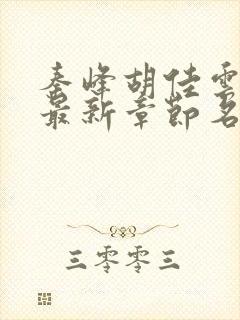 秦峰胡佳雲
最新章節名
三零零三